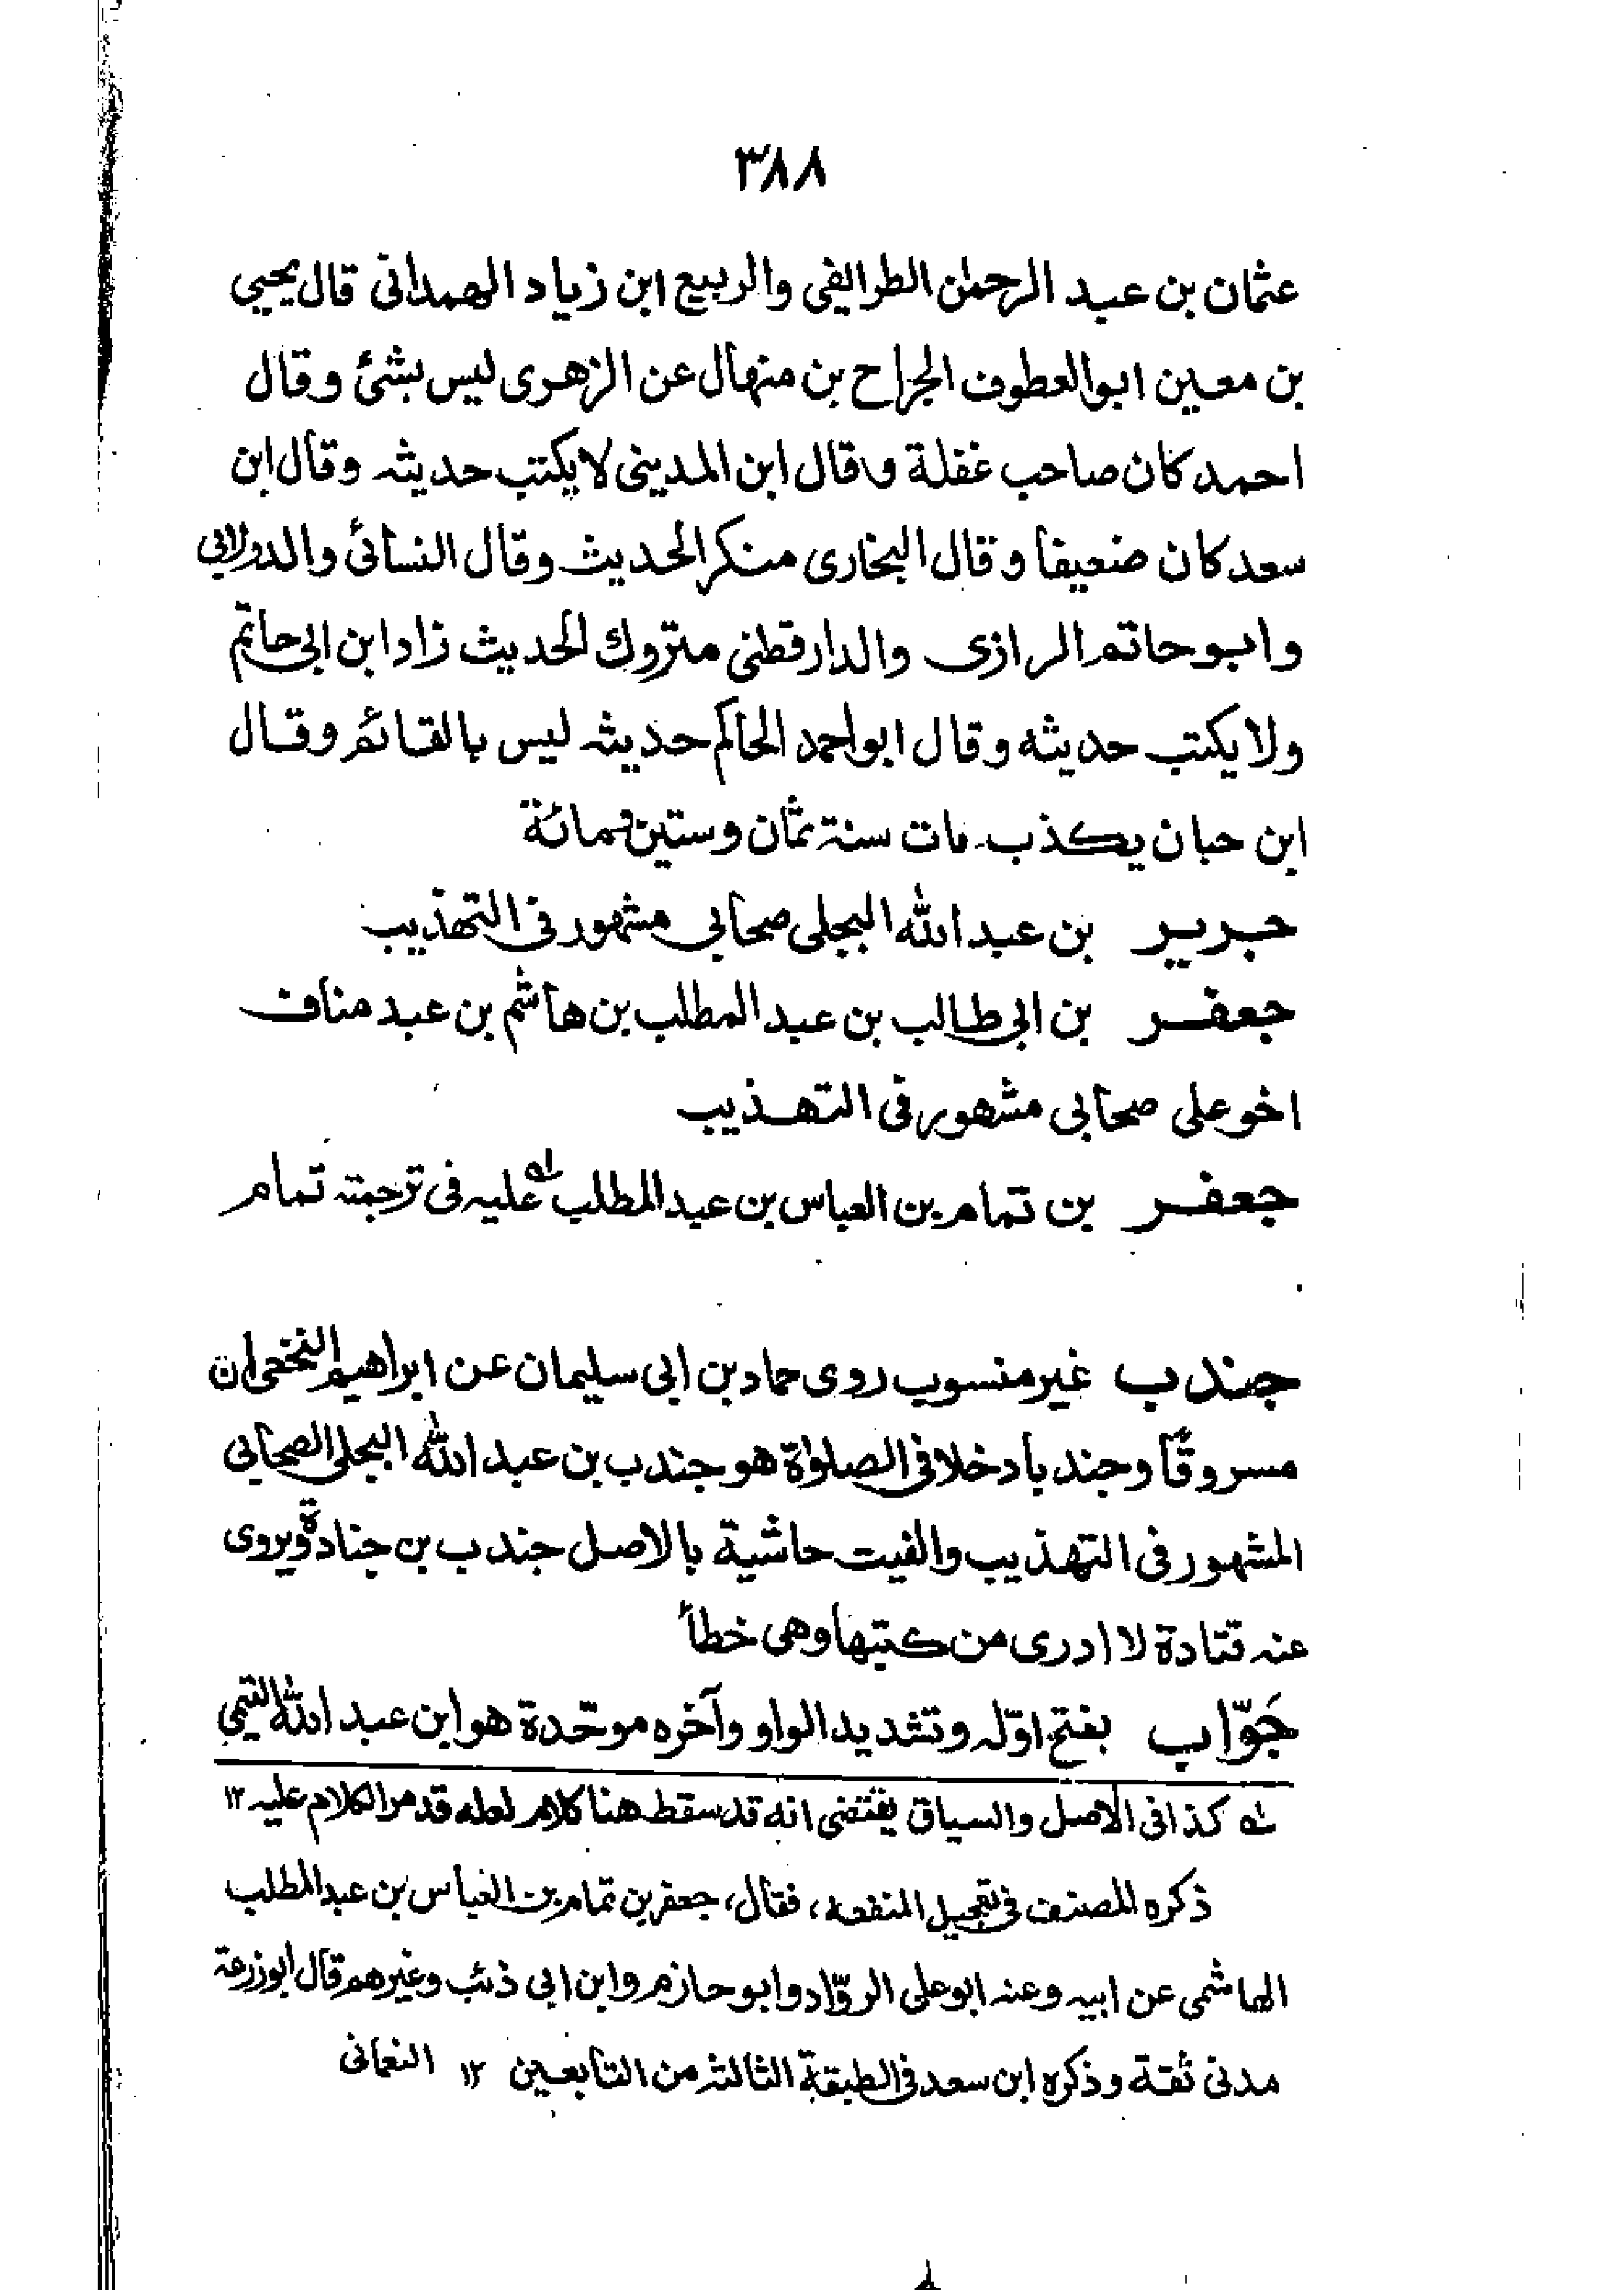 ٣٨٨
عثمان بن عبد الرحمٰن الطرائفى والربيع ابن زياد الهمدانى قال يحيى
بن معين ابوالعطوف الجراح بن منهال عن الزهرى ليس بشئ وقال
احمد كان صاحب غفلة وقال ابن المدينى لا يكتب حديثه وقال ابن
سعد كان ضعيفا وقال البخارى منكر الحديث وقال النسائى والدولابى
وابو حاتم الرازى والدارقطنى متروك الحديث زاد ابن ابى حاتم
ولا يكتب حديثه وقال ابو احمد الحاكم حديثه ليس بالقائم وقال
ابن حبان يكذب مات سنة ثمان وستين ومائة
جرير بن عبد الله البجلى صحابى مشهور فى التهذيب
جعفر بن ابى طالب بن عبد المطلب بن هاشم بن عبد مناف
اخو على صحابى مشهور فى التهذيب
جعفر بن تمام بن العباس بن عبد المطلب له عليه فى ترجمته تمام
جندب غير منسوب روى حماد بن ابى سليمان عن ابراهيم النخعى ان
مسروقًا وجندبا دخلا فى الصلوٰة هو جندب بن عبد الله البجلى الصحابى
المشهور فى التهذيب والفيت حاشية بالاصل جندب بن جنادة ويروى
عنه قتادة لا ادرى من كتبها وهى خطأ
جَوّاب بفتح اوّله وتشديد الواو وآخره موحّدة هو ابن عبد الله التيمى
له كذا فى الاصل والسياق يقتضى انه قد سقط هنا كلام لعله قد مر الكلام عليه ١٢
ذكره المصنف فى تعجيل المنفعة، فقال، جعفر بن تمام بن العباس بن عبد المطلب
الهاشمى عن ابيه وعنه ابو على الروّاد وابو حازم وابن ابى ذئب وغيرهم قال ابوزرعة
مدنى ثقة وذكره ابن سعد فى الطبقة الثالثة من التابعين ١٢ النعمانى